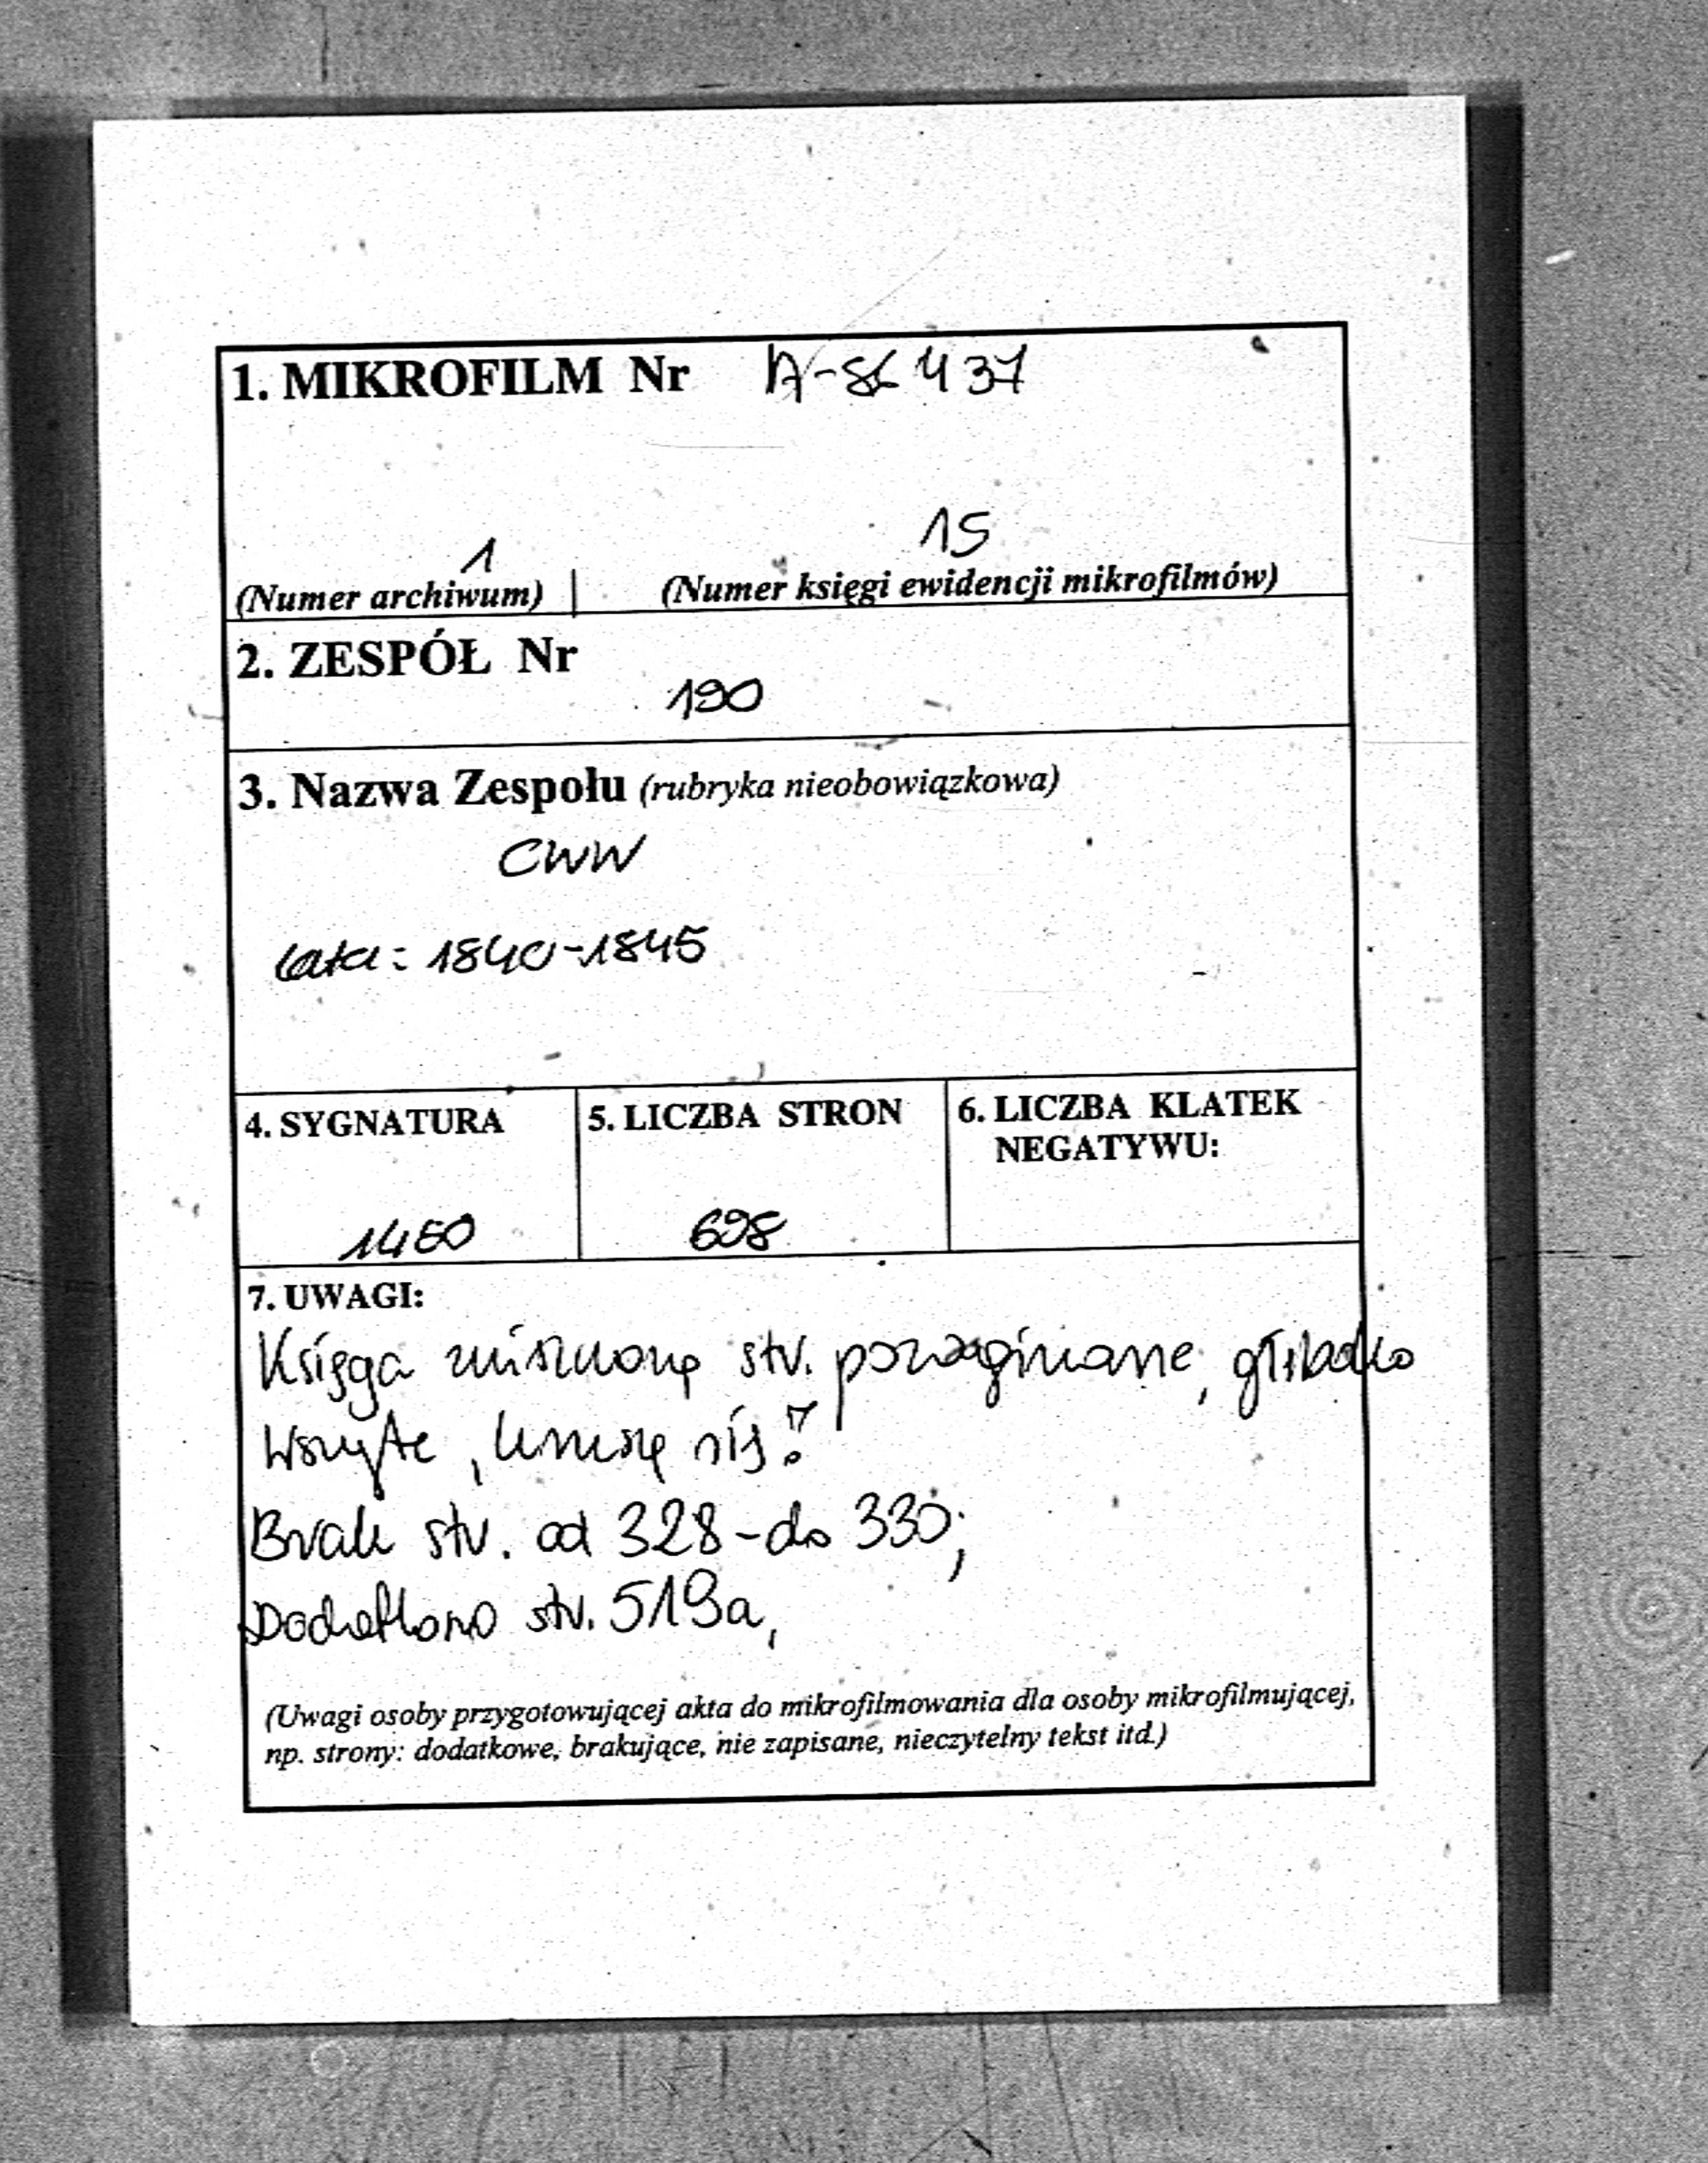 1. MIKROFILM Nr A-86437
1 15
(Numer archiwum) | (Numer księgi ewidencji mikrofilmów)
2. ZESPÓŁ Nr
190
3. Nazwa Zespołu (rubryka nieobowiązkowa)
CWW
lata: 1840-1845
4. SYGNATURA 5. LICZBA STRON 6. LICZBA KLATEK
NEGATYWU:
1460 698
7. UWAGI:
Księga str. pozaginane, głęboko
wszyte, kruszą się!
Brak str. od 328-do 330;
Dodatkowo str. 519a,
(Uwagi osoby przygotowującej akta do mikrofilmowania dla osoby mikrofilmującej,
np. strony: dodatkowe, brakujące, nie zapisane, nieczytelny tekst itd.)